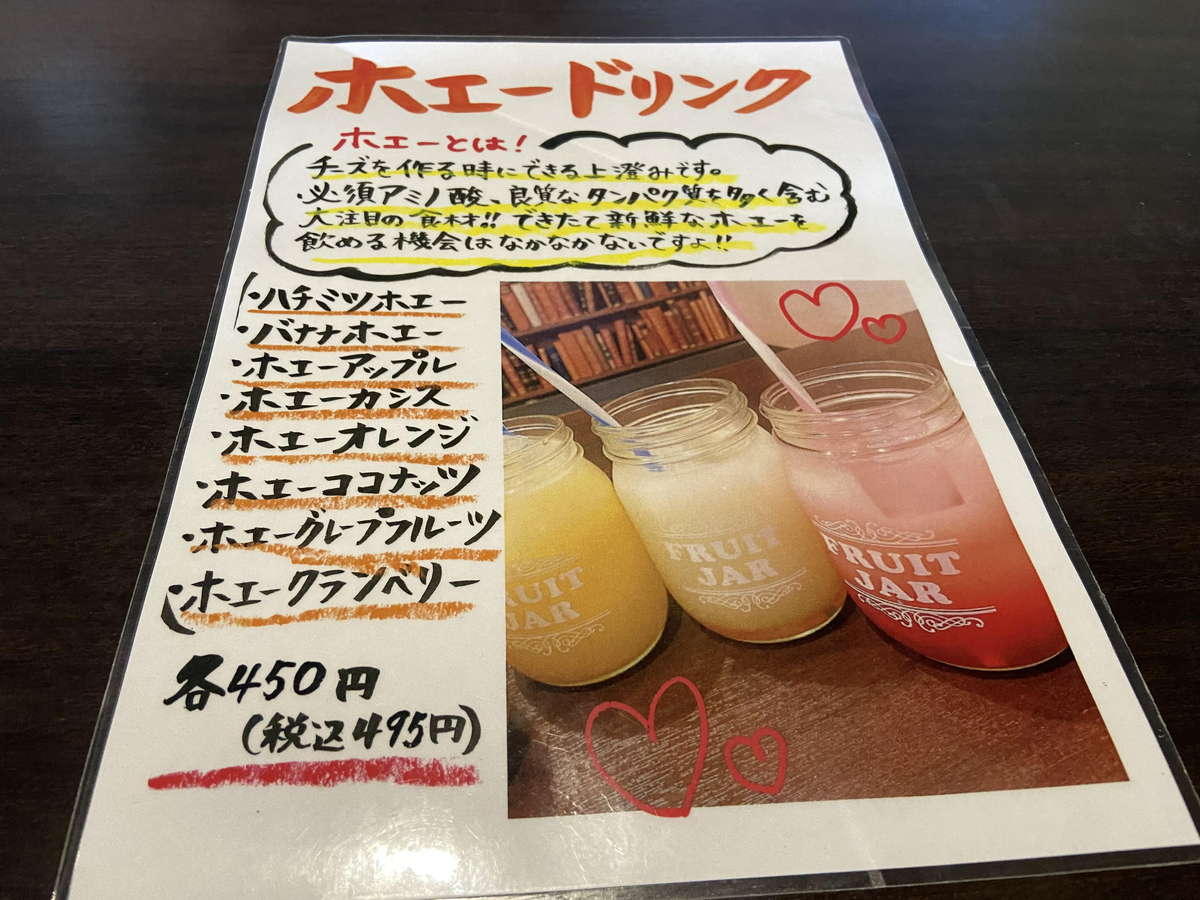 ホエードリンク
ホエーとは!
チーズを作る時にできる上澄みです。
・必須アミノ酸、良質なタンパク質を多く含む
大注目の食材!!できたて新鮮なホエーを
飲める機会はなかなかないですよ!!
・ハチミツホエー
・バナナホエー
・ホエーアップル
・ホエーカシス
・ホエーオレンジ
・ホエーココナッツ
・ホエーグレープフルーツ
・ホエークランベリー
各450円
(税込495円)
RUIT
JAR
FRUIT
JAR
FRUIT
JAR